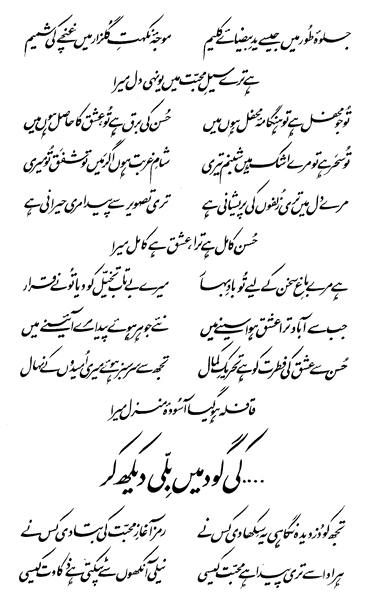 جلوۂ طُور میں جیسے یدِ بیضائے کلیم موجۂ نکہتِ گلزار میں غنچے کی شمیم
ہے ترے سیلِ محبّت میں یونہی دل میرا
تُو جو محفل ہے تو ہنگامۂ محفل ہوں میں حُسن کی برق ہے تُو، عشق کا حاصل ہوں میں
تُو سحَر ہے تو مرے اشک ہیں شبنم تیری شامِ غربت ہوں اگر مَیں تو شفَق تُو میری
مرے دل میں تری زُلفوں کی پریشانی ہے تری تصویر سے پیدا مری حیرانی ہے
حُسن کامل ہے ترا، عشق ہے کامل میرا
ہے مرے باغِ سخن کے لیے تُو بادِ بہار میرے بے تاب تخیّل کو دیا تُو نے قرار
جب سے آباد ترا عشق ہوا سینے میں نئے جوہر ہوئے پیدا مرے آئینے میں
حُسن سے عشق کی فطرت کو ہے تحریکِ کمال تجھ سے سر سبز ہوئے میری اُمیدوں کے نہال
قافلہ ہو گیا آسُودۂ منزل میرا
.... کی گود میں بِلّی دیکھ کر
تجھ کو دُزدیدہ نگاہی یہ سِکھا دی کس نے رمز آغازِ محبّت کی بتا دی کس نے
ہر ادا سے تری پیدا ہے محبّت کیسی نیلی آنکھوں سے ٹپکتی ہے ذکاوت کیسی